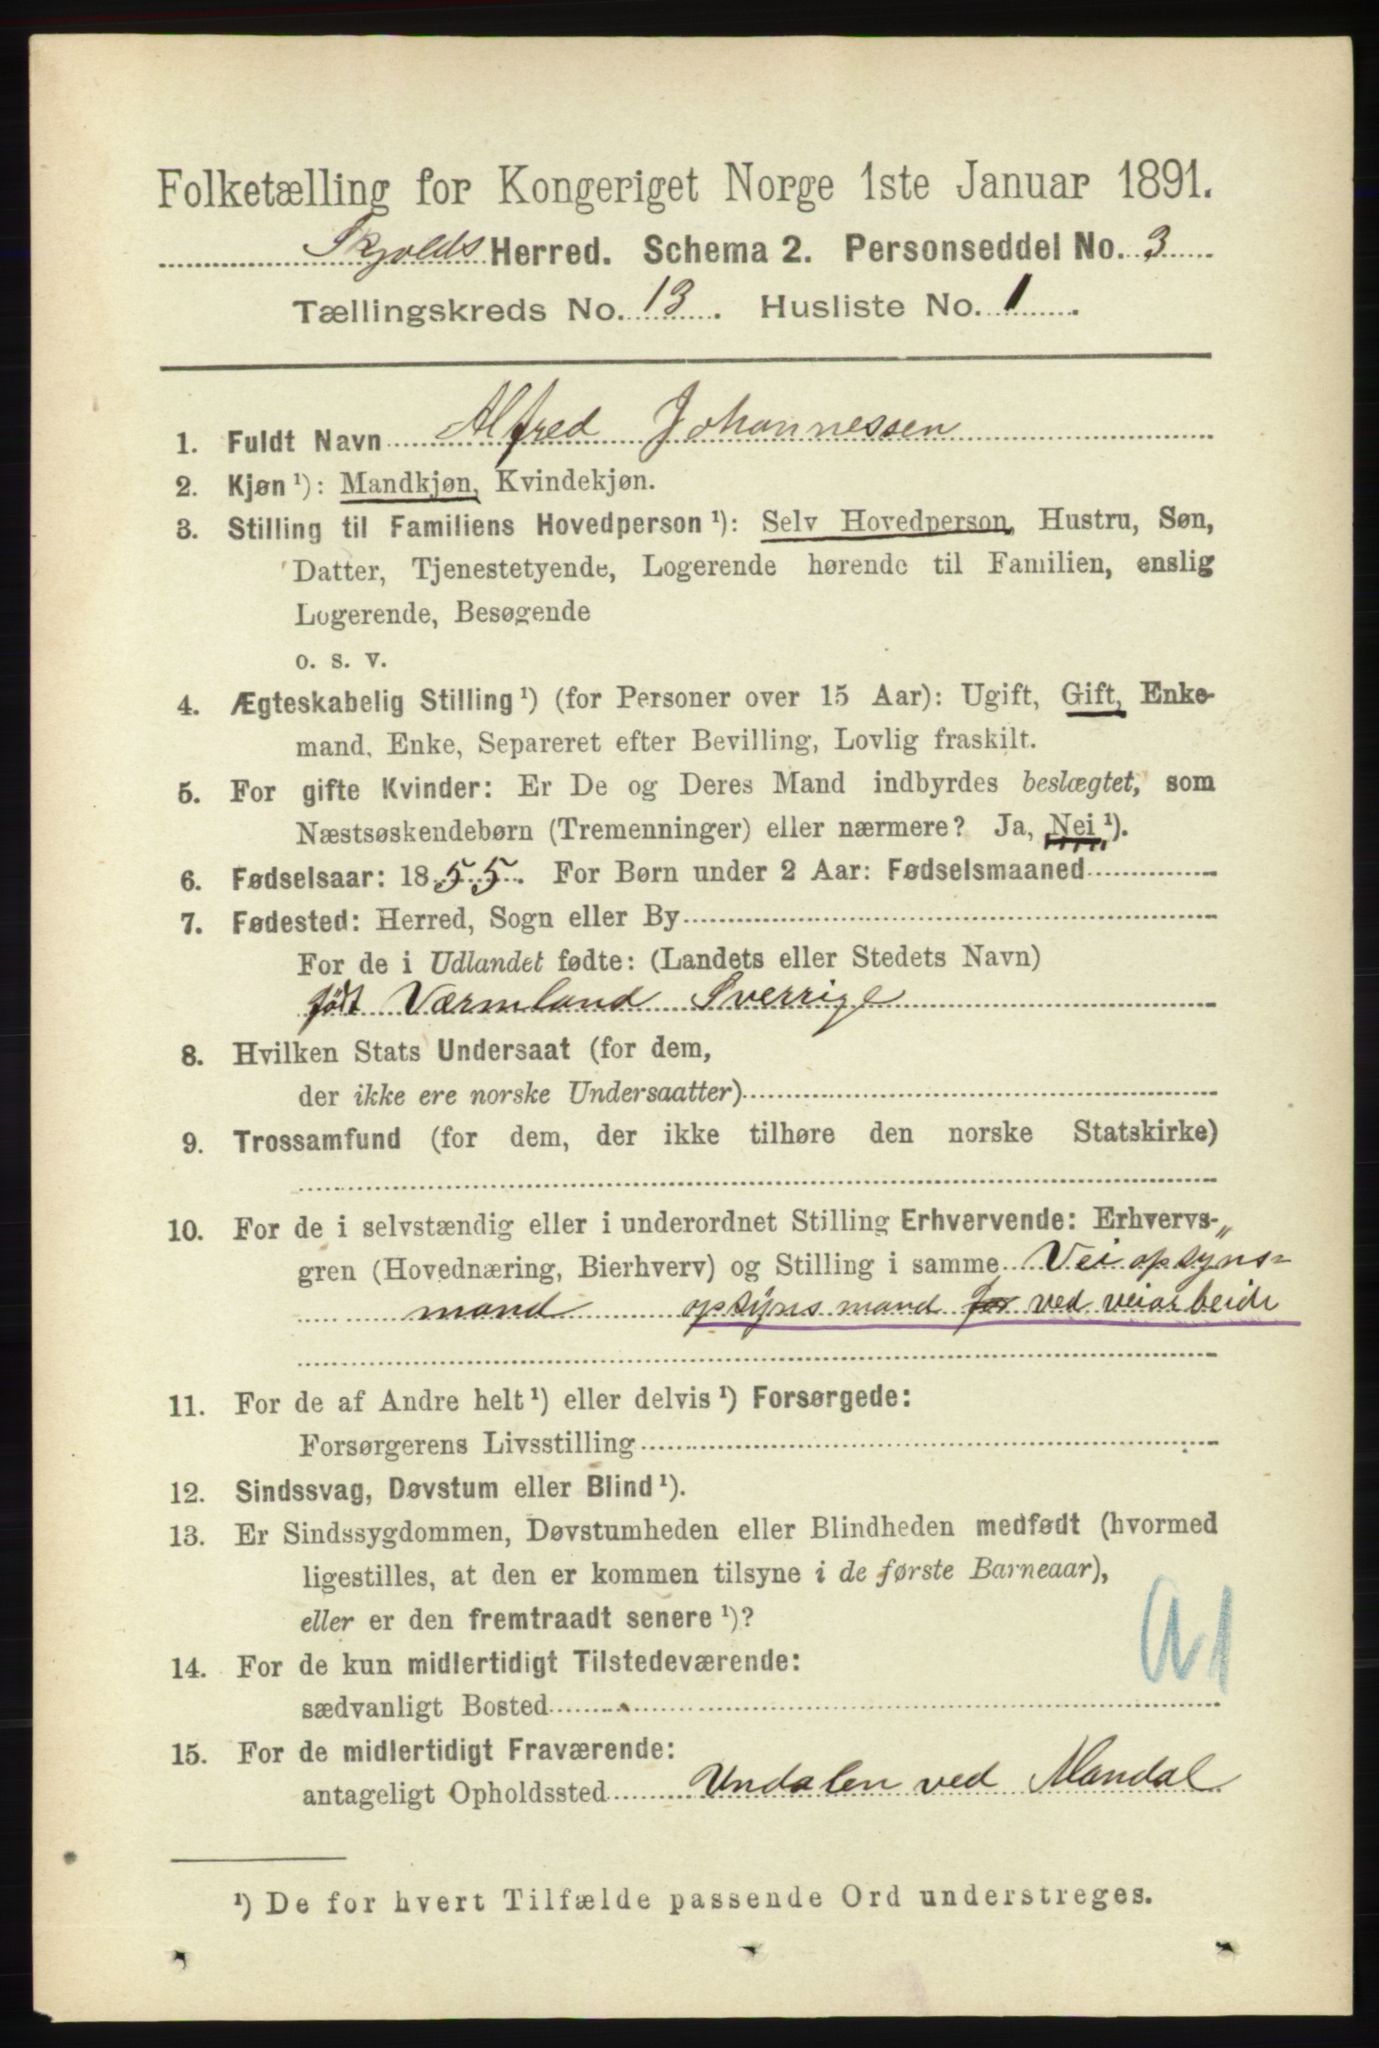 Folketælling for Kongeriget Norge 1ste Januar 1891.
Skjolds Herred. Schema 2. Personseddel No. 3
Tællingskreds No. 13. Husliste No. 1.
1. Fuldt Navn Alfred Johannessen
2. Kjøn ¹): Mandkjøn, Kvindekjøn.
3. Stilling til Familiens Hovedperson ¹): Selv Hovedperson, Hustru, Søn,
Datter, Tjenestetyende, Logerende hørende til Familien, enslig
Logerende, Besøgende
o. s. v.
4. Ægteskabelig Stilling ¹) (for Personer over 15 Aar): Ugift, Gift, Enke-
mand, Enke, Separeret efter Bevilling, Lovlig fraskilt.
5. For gifte Kvinder: Er De og Deres Mand indbyrdes beslægtet, som
Næstsøskendebørn (Tremenninger) eller nærmere? Ja, Nei ¹).
6. Fødselsaar: 1855. For Børn under 2 Aar: Fødselsmaaned
7. Fødested: Herred, Sogn eller By
For de i Udlandet fødte: (Landets eller Stedets Navn)
født Værmland Sverrige
8. Hvilken Stats Undersaat (for dem,
der ikke ere norske Undersaatter)
9. Trossamfund (for dem, der ikke tilhøre den norske Statskirke)
10. For de i selvstændig eller i underordnet Stilling Erhvervende: Erhvervs-
gren (Hovednæring, Bierhverv) og Stilling i samme Vei opsyns=
mand opsynsmand for ved veiarbeide
11. For de af Andre helt ¹) eller delvis ¹) Forsørgede:
Forsørgerens Livsstilling
12. Sindssvag, Døvstum eller Blind ¹).
13. Er Sindssygdommen, Døvstumheden eller Blindheden medfødt (hvormed
ligestilles, at den er kommen tilsyne i de første Barneaar),
eller er den fremtraadt senere ¹)?
A1
14. For de kun midlertidigt Tilstedeværende:
sædvanligt Bosted
15. For de midlertidigt Fraværende:
antageligt Opholdssted Undalen ved Mandal
¹) De for hvert Tilfælde passende Ord understreges.